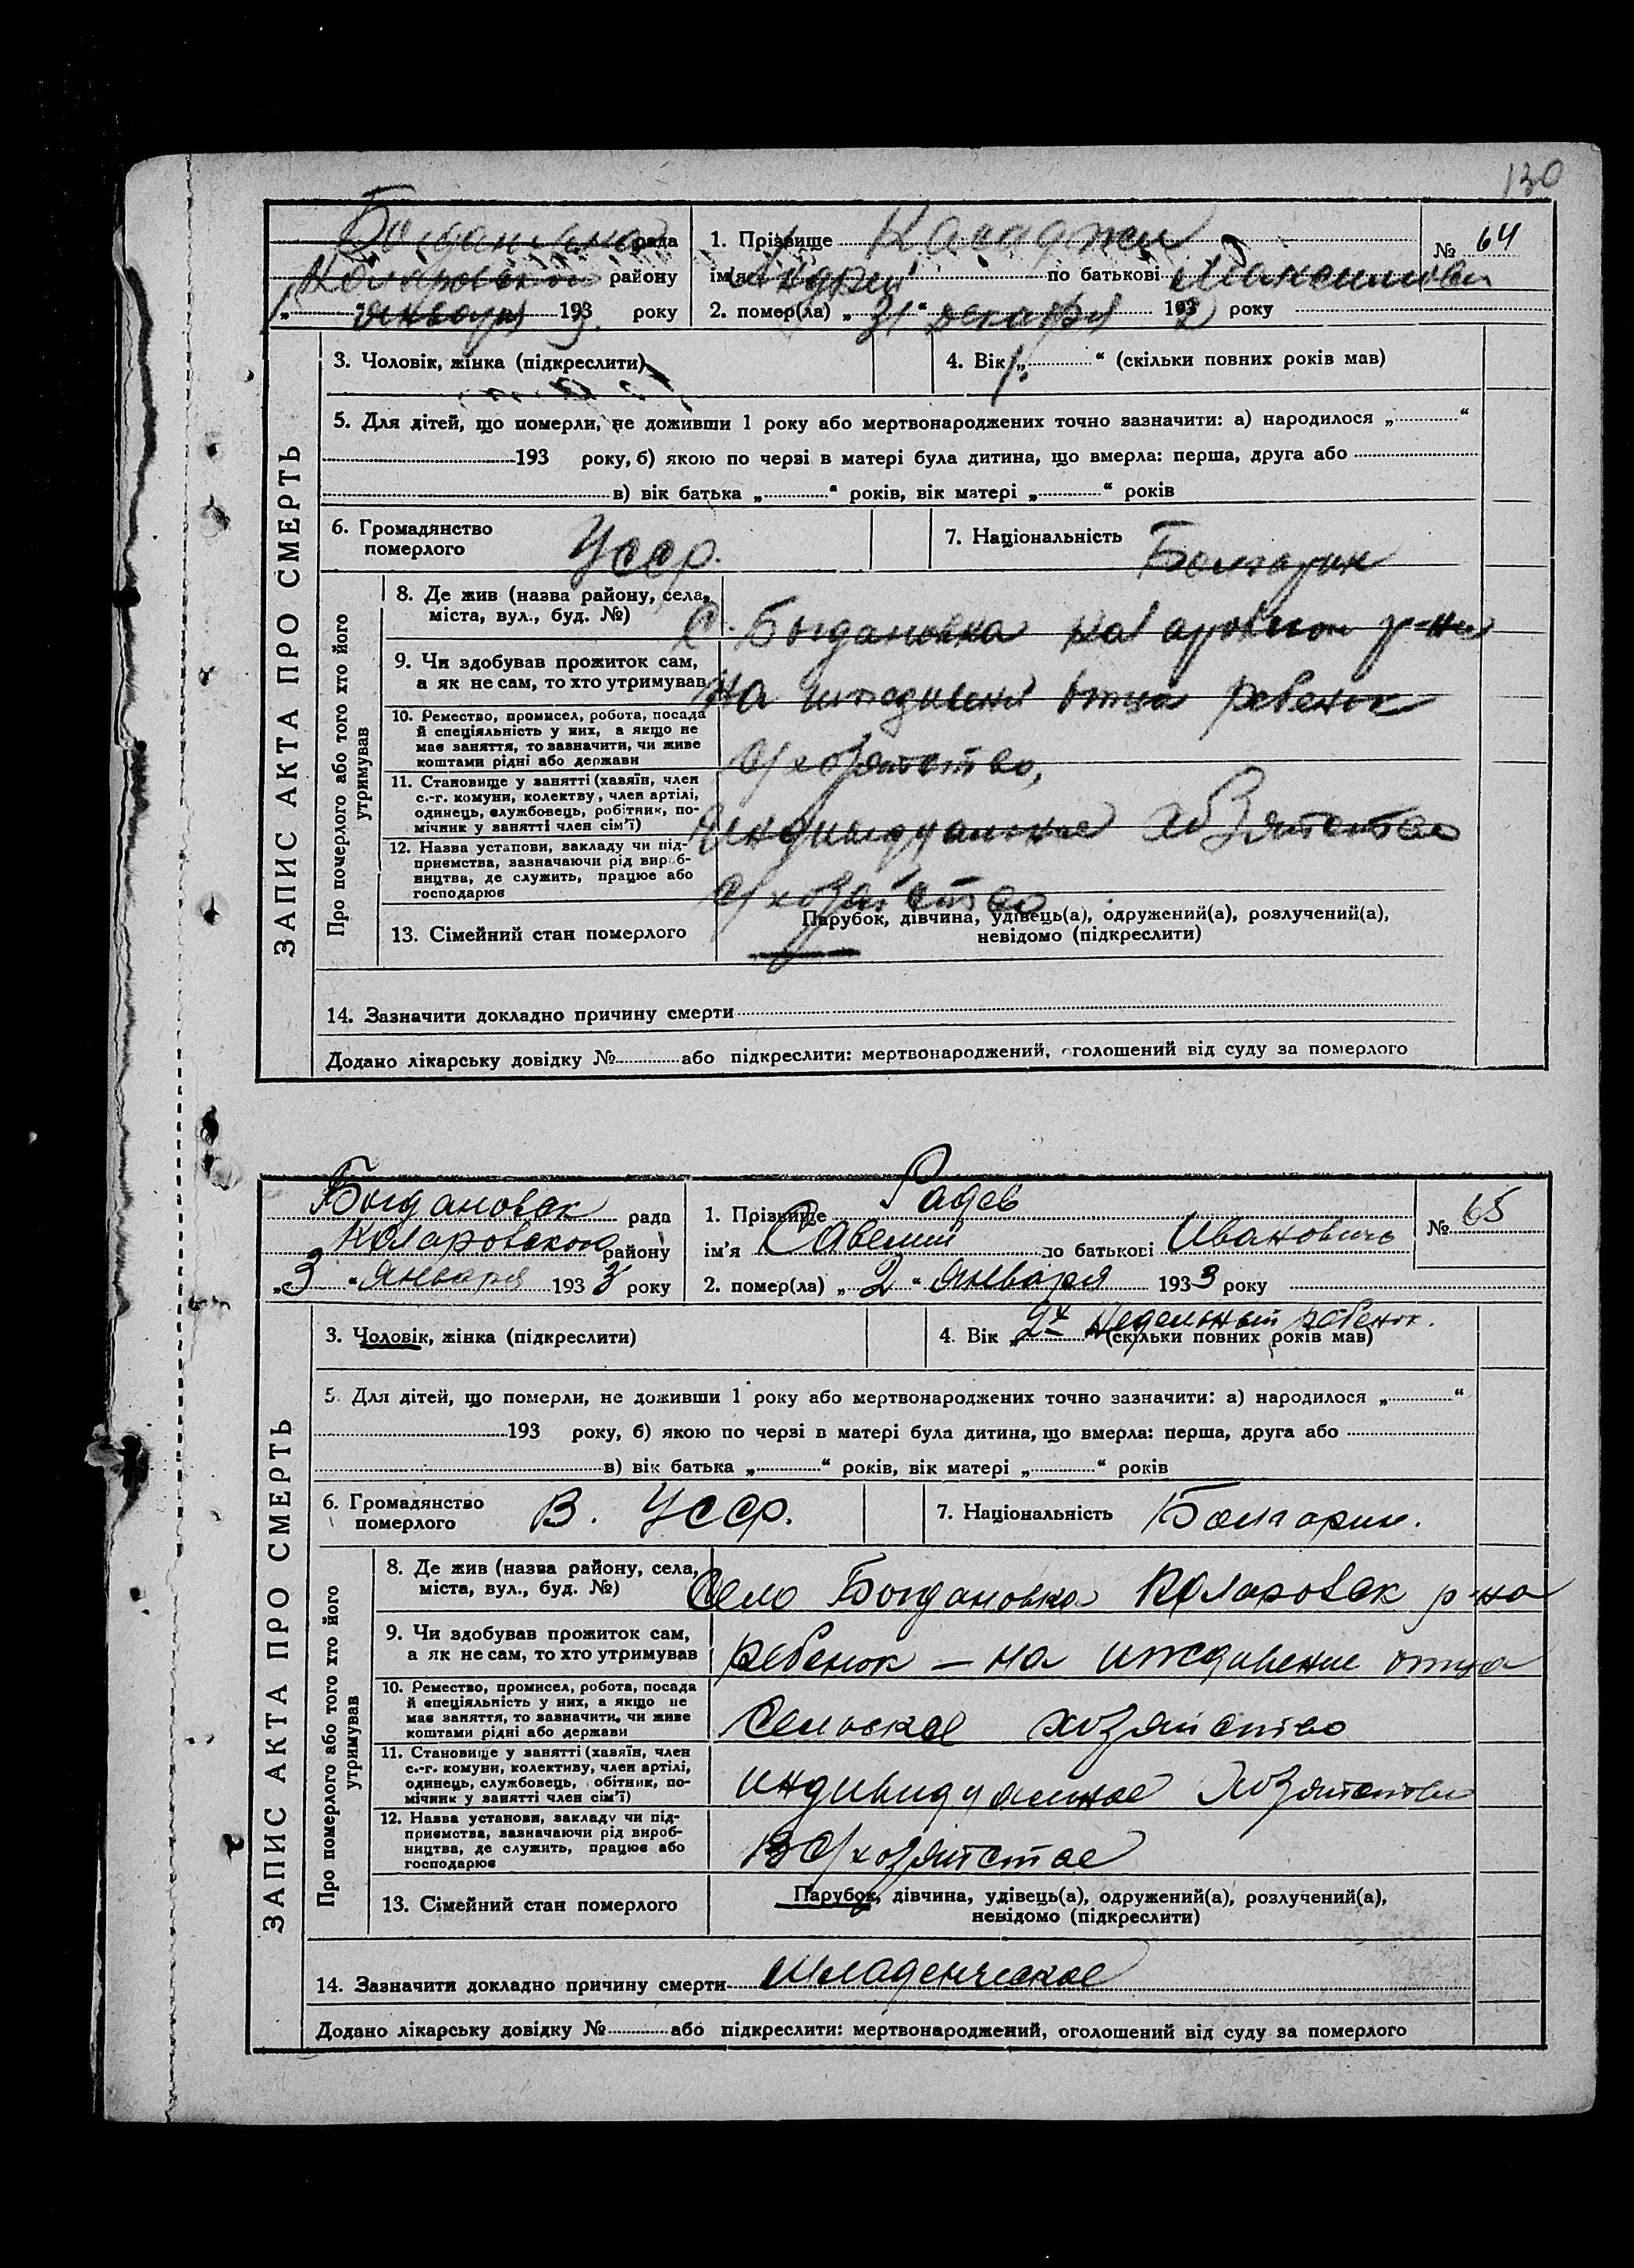 130
Богдановка рада 1. Прізвище Караджи № 64
Коларовский району ім'я Андрей по батькові Максимови
1 „ января 193 3. року 2. помер(ла) „ 31 “ декабря 193 2 року
3. Чоловік, жінка (підкреслити) 4. Вік „ 1. “ (скільки повних років мав)
5. Для дітей, що померли, не доживши 1 року або мертвонароджених точно зазначити: а) народилося „ “
193 року, б) якою по черзі в матері була дитина, що вмерла: перша, друга або
в) вік батька „ “ років, вік матері „ “ років
6. Громадянство померлого Усср. 7. Національність Болгарин
ЗАПИС АКТА ПРО СМЕРТЬ
Про померлого або того хто його утримував
8. Де жив (назва району, села,
міста, вул., буд. №) С. Богдановка р-на
9. Чи здобував прожиток сам,
а як не сам, то хто утримував На иждивени отца ребенок
10. Ремество, промисел, робота, посада
й спеціяльність у них, а якщо не
має заняття, то зазначити, чи живе
коштами рідні або держави С/хозяйство,
11. Становище у занятті (хазяїн, член
с.-г. комуни, колектву, член артілі,
одинець, службовець, робітник, по-
мічник у занятті член сім'ї) Индивидуальное хозяйство
12. Назва установи, закладу чи під-
приємства, зазначаючи рід вироб-
ництва, де служить, працює або
господарює С/хозяйство
13. Сімейний стан померлого Парубок, дівчина, удівець(а), одружений(а), розлучений(а),
невідомо (підкреслити)
14. Зазначити докладно причину смерти
Додано лікарську довідку № або підкреслити: мертвонароджений, оголошений від суду за померлого
Богдановск рада 1. Прізвище Радев № 65
Коларовского району ім'я Савелий по батькові Иванович
„ 3 “ Января 193 3 року 2. помер(ла) „ 2 “ Января 193 3 року
3. Чоловік, жінка (підкреслити) 4. Вік „ 2х недельный ребенок. (скільки повних років мав)
5. Для дітей, що померли, не доживши 1 року або мертвонароджених точно зазначити: а) народилося „ “
193 року, б) якою по черзі в матері була дитина, що вмерла: перша, друга або
в) вік батька „ “ років, вік матері „ “ років
6. Громадянство померлого В. Усср. 7. Національність Болгарин.
ЗАПИС АКТА ПРО СМЕРТЬ
Про померлого або того хто його утримував
8. Де жив (назва району, села,
міста, вул., буд. №) Село Богдановка Коларовск р-на
9. Чи здобував прожиток сам,
а як не сам, то хто утримував ребенок — на иждивение отца
10. Ремество, промисел, робота, посада
й спеціяльність у них, а якщо не
має заняття, то зазначити, чи живе
коштами рідні або держави Сельское хозяйство
11. Становище у занятті (хазяїн, член
с.-г. комуни, колективу, член артілі,
одинець, службовець, робітник, по-
мічник у занятті член сім'ї) индивидуальное хозяйство
12. Назва установи, закладу чи під-
приємства, зазначаючи рід вироб-
ництва, де служить, працює або
господарює В с/хозяйстве
13. Сімейний стан померлого Парубок, дівчина, удівець(а), одружений(а), розлучений(а),
невідомо (підкреслити)
14. Зазначити докладно причину смерти Младенческое
Додано лікарську довідку № або підкреслити: мертвонароджений, оголошений від суду за померлого